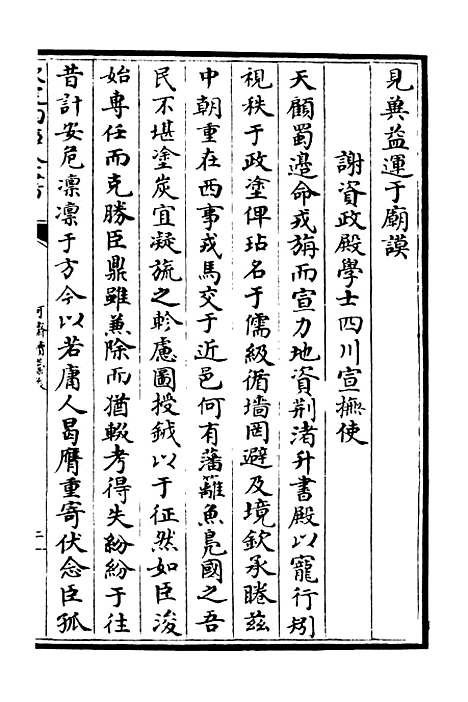 見兾益運于廟謨
謝資政殿學士四川宣撫使
天顧蜀邊命戎旃而宣力地資荆渚升書殿以寵行矧
視秩于政塗俾玷名于儒級循墻罔避及境欽承睠茲
中朝重在西事戎馬交于近邑何有藩籬魚鳧國之吾
民不堪塗炭宜凝旒之軫慮圖授鉞以于征然如臣浚
始專任而克勝臣鼎雖兼除而猶輟考得失紛紛于往
昔計安危凛凛于方今以若庸人曷膺重寄伏念臣孤